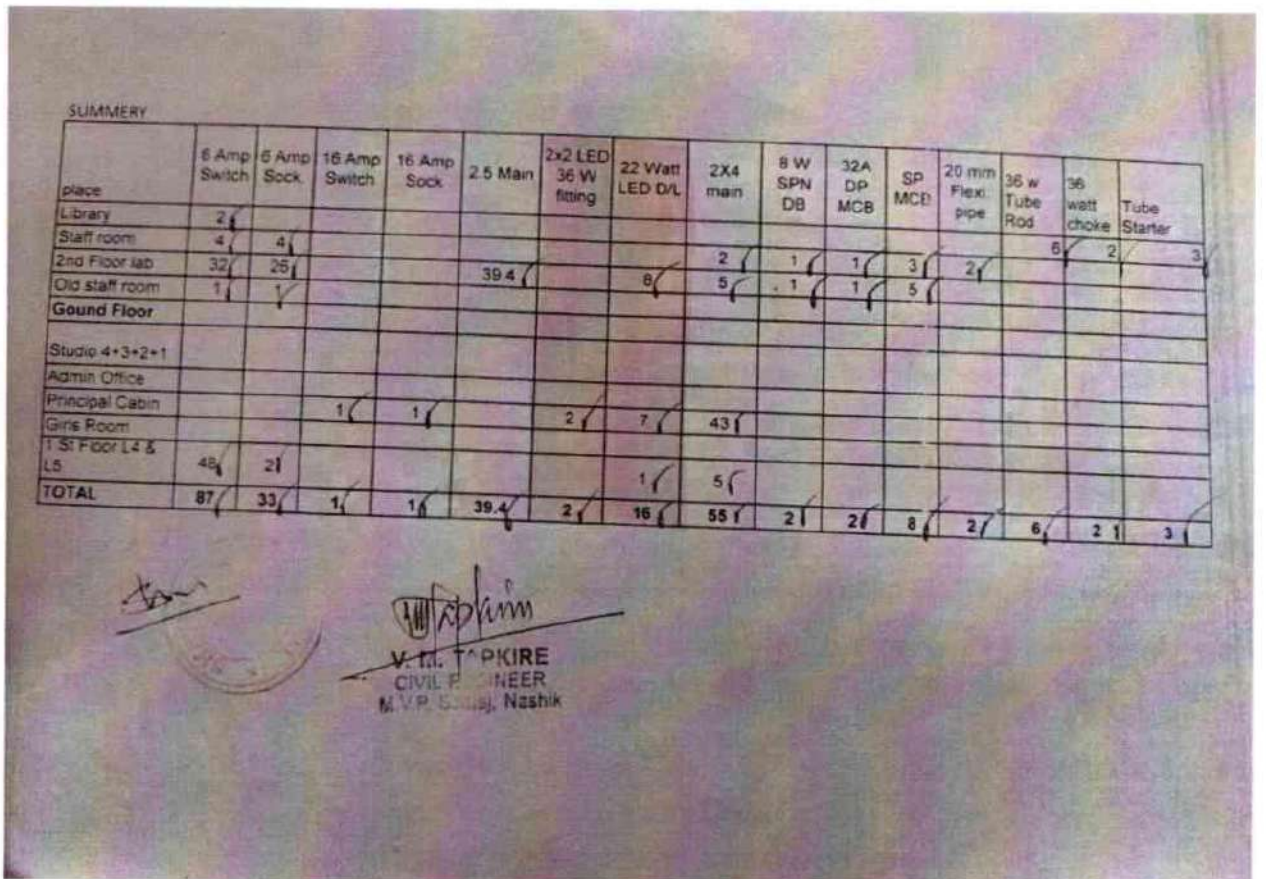 SUMMERY
place 6 Amp Switch 6 Amp Sock 16 Amp Switch 16 Amp Sock 2.5 Main 2x2 LED 36 W fitting 22 Watt LED D/L 2X4 main 8 W SPN DB 32A DP MCB SP MCB 20 mm Flexi pipe 36 w Tube Rod 36 watt choke Tube Starter
Library 2 6 2 3
Staff room 4 4 2 1 1 3 2
2nd Floor lab 32 26 39.4 8 5 1 1 5
Old staff room 1 1
Gound Floor
Studio 4+3+2+1
Admin Office
Principal Cabin 1 1 2 7 43
Girls Room
1 St Floor L4 & L5 48 2 1 5
TOTAL 87 33 1 1 39.4 2 16 55 2 2 8 2 6 2 3
V. M. TAPKIRE
CIVIL ENGINEER
M.V.P. Samaj, Nashik